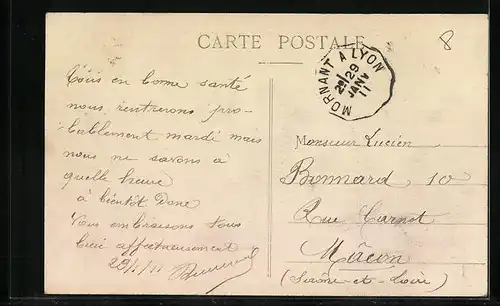 CARTE POSTALE
8
MORNANT A LYON
2E/29
JANV
11
Tous en bonne santé
nous rentrerons pro-
bablement mardi mais
nous ne savons à
quelle heure
à bientôt Donc
Vous embrassons tous
bien affectueusement
29/1/11 Bonnard
Monsieur Lucien
Bonnard 10
Rue Carnot
Mâcon
(Saône-et-Loire)